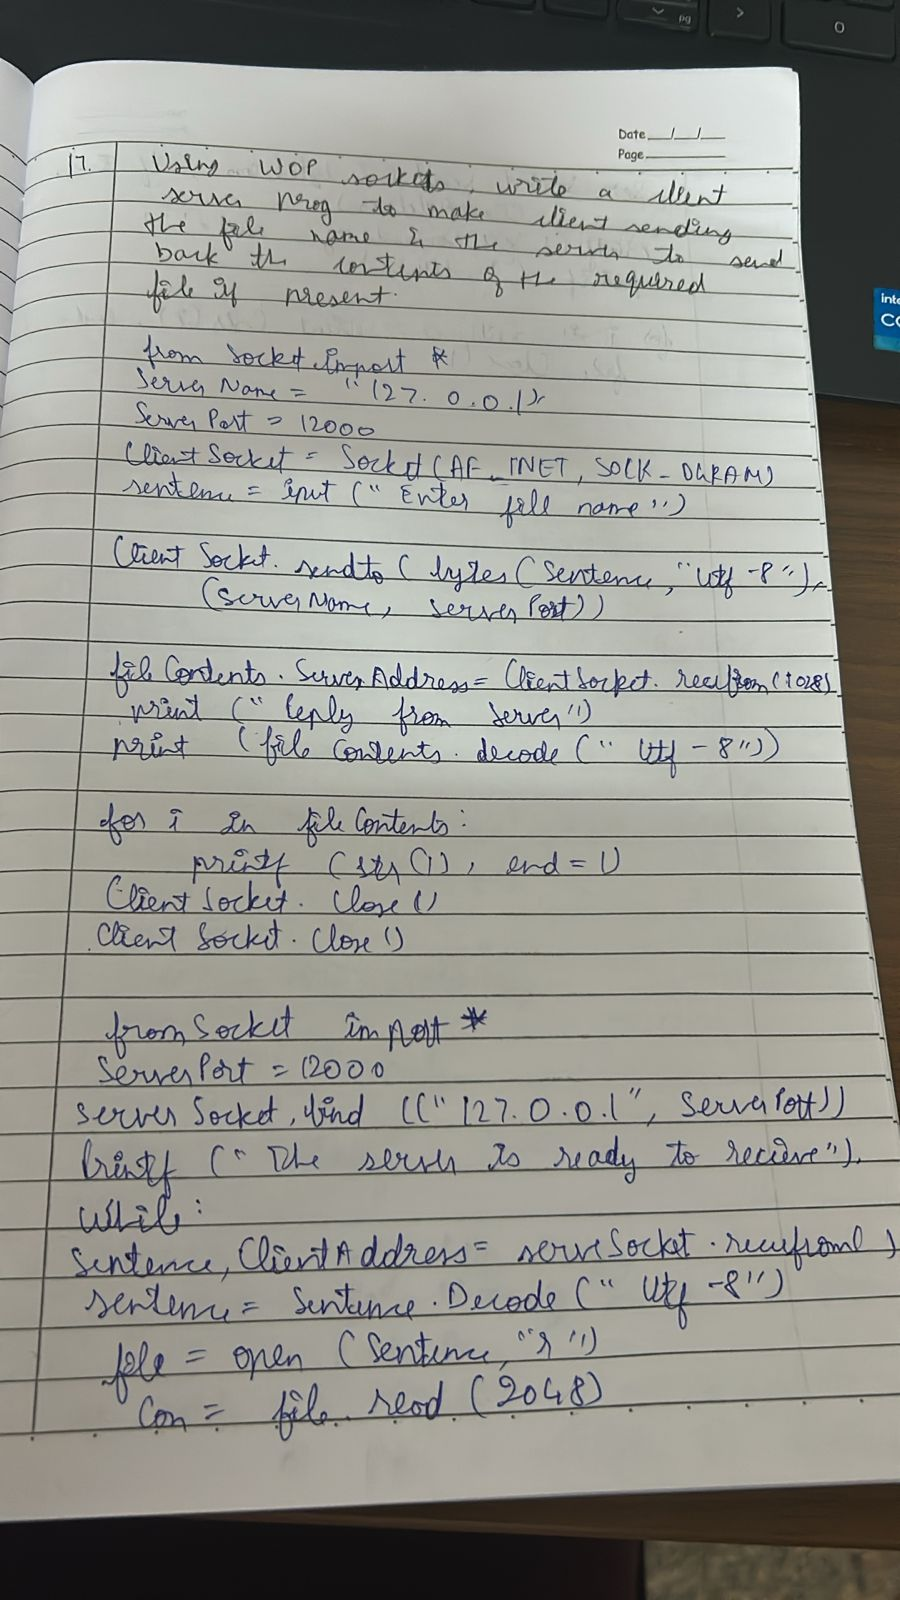 Date __/__/__
Page
17. Using WOP sockets, write a client
server prog to make client sending
the file name & the server to send
back the contents of the required
file if present.
from Socket import *
Server Name = "127.0.0.1"
Server Port = 12000
Client Socket = Socket (AF_INET, SOCK-DGRAM)
sentence = input (" Enter file name")
Client Socket. sendto ( bytes (Sentence, "utf -8"),
(serverName, server Port))
file Contents. Server Address = Client Socket. recvfrom(1028)
print (" Reply from server")
print (file Contents. decode (" Utf - 8"))
for i in file Contents:
printf (str(i), end = ')
Client Socket. Close ()
Client Socket. Close ()
from Socket import *
Server Port = 12000
server Socket, bind (("127.0.0.1", Server Port))
Printf (" The server is ready to recieve").
While:
Sentence, Client Address = serve Socket. recvfrom( )
sentence = Sentence. Decode (" Utf -8")
file = open (Sentence, "r")
Con = file. read (2048)
pg
O
inte
CO